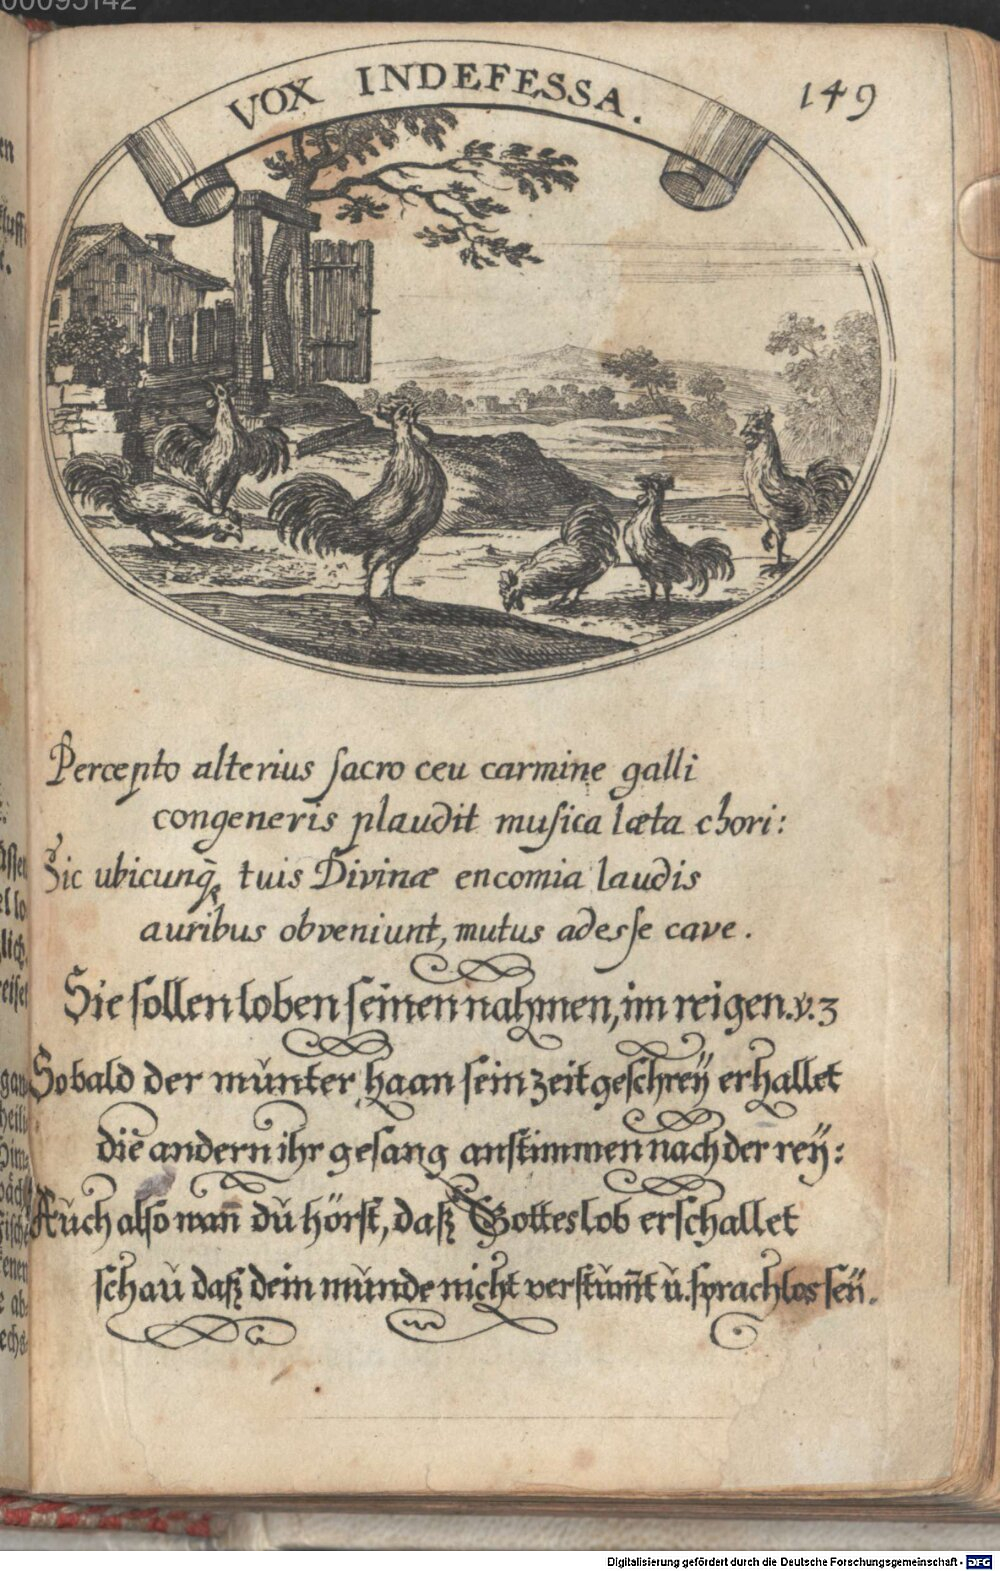 00095142
VOX INDEFESSA.
149
Percepto alterius sacro ceu carmine galli
congeneris plaudit musica læta chori:
Sic ubicunq̃ tuis Divinæ encomia laudis
auribus obveniunt, mutus adesse cave.
Sie sollen loben seinen nahmen, im reigen. v. 3
So bald der mŭnter haan sein zeitgeschreÿ erhallet
die andern ihr gesang anstimmen nach der reÿ:
Aŭch also wan̄ dŭ hörst, daß Gottes lob erschallet
schaŭ daß dein mŭnde nicht verstŭm̄t ŭ. sprachlos seÿ.
Digitalisierung gefördert durch die Deutsche Forschungsgemeinschaft - DFG